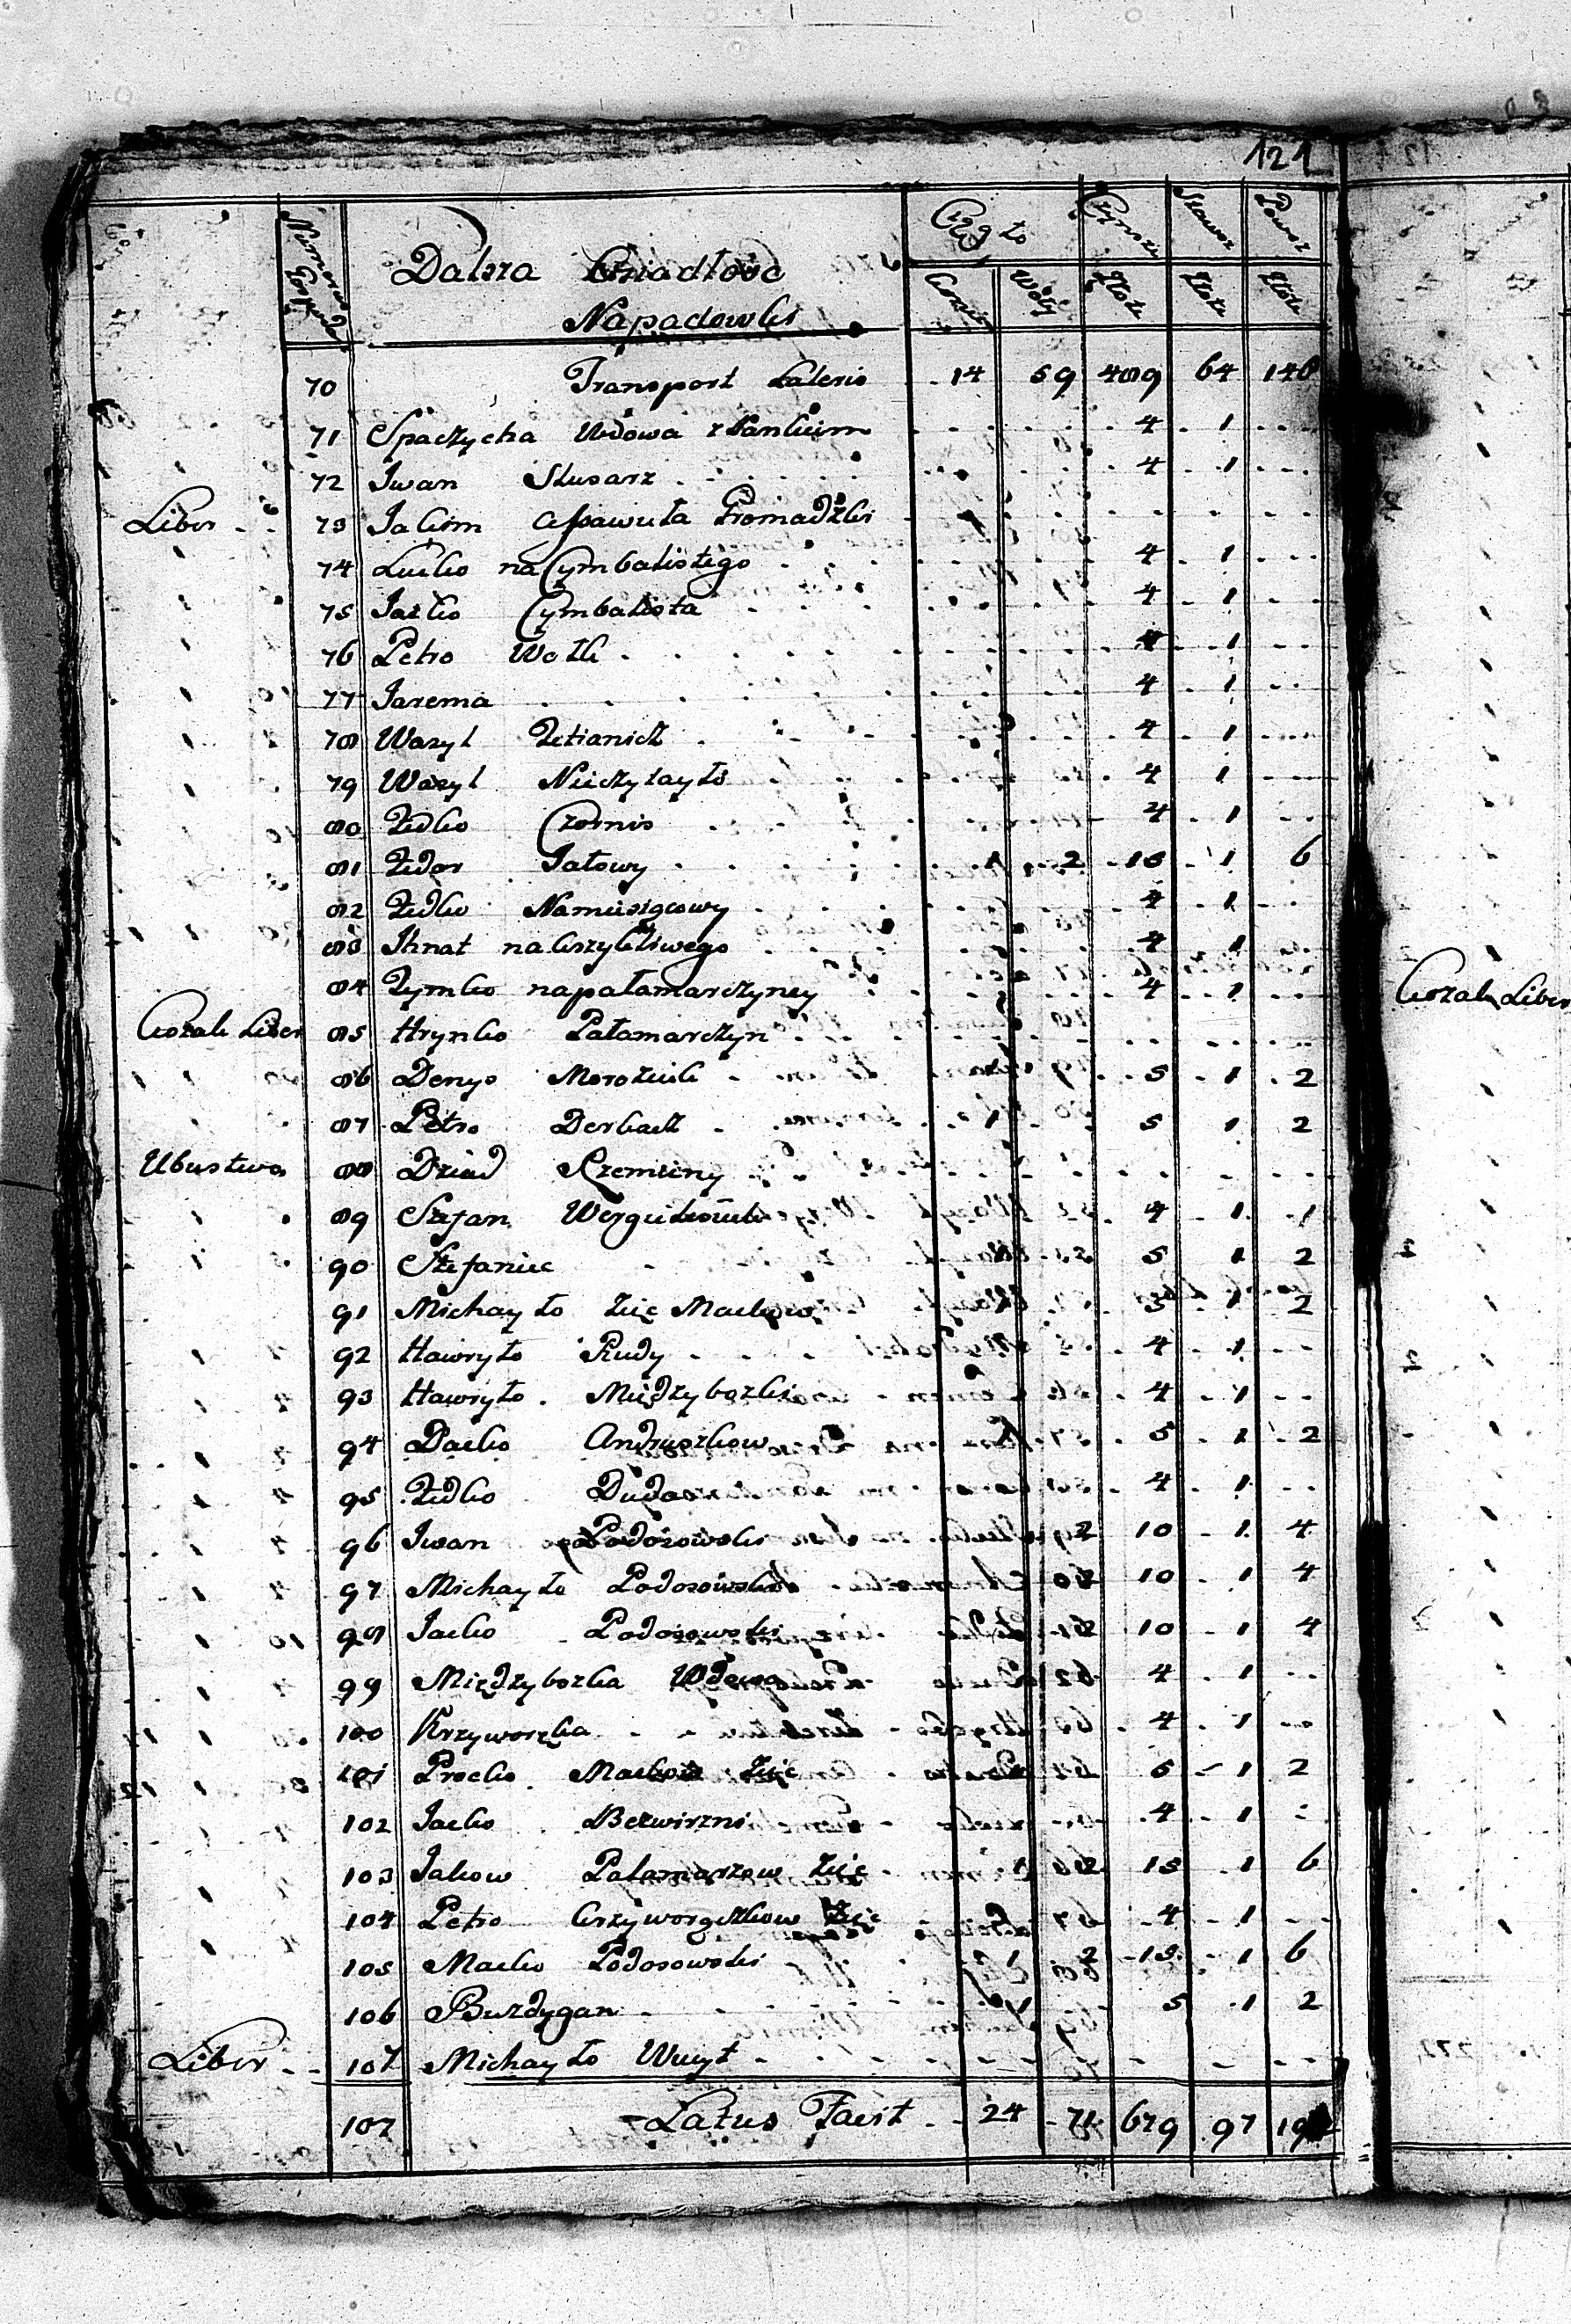 121
Numerus
Dalsza Osiadłość
Napadowki
Ciągło
Czynszu
Stawsz
Powoz
Konie
Woły
Złote
Złote
Złote
70 Transport Lateris 14 59 489 64 148
71 Spaczycha Wdowa z 4 1
72 Iwan Slusarz 4 1
Liber 73 Jakim Assawuła Hromadzki
74 Łućko na Cymbalistego 4 1
75 Jaćko Cymbalista 4 1
76 Petro Wołk 4 1
77 Jarema 4 1
78 Wasyl 4 1
79 Wasyl Nieczytayło 4 1
80 Fedko Czornis 4 1
81 Fedor Jałowy 1 2 15 1 6
82 Fedko 4 1
83 Ihnat na krzykliwego 4 1
84 Tymko na pałamarczyney 4 1
Kozak Liber 85 Hrynko Pałamarczyn
86 Denys Moroziuk 5 1 2
87 Petro Derkacz 5 1 2
Ubustwo 88 Dziad Krzemieny
89 Stefan 4 1 1
90 Stefaniec 5 1 2
91 Michayło Zięć Mackow 5 1 2
92 Hawryło Rudy 4 1
93 Hawryło Międzybozki 4 1
94 Dacko Andruszkow 5 1 2
95 Fedko Dudaś 4 1
96 Iwan Podosowski 2 10 1 4
97 Michayło Podosowski 2 10 1 4
98 Jacko Podosowski 2 10 1 4
99 Międzybozka Wdowa 4 1
100 Krzyworczka 4 1
101 Procko Mackow Zięć 5 1 2
102 Jacko Bezwirzni 4 1
103 Jakow Pałamarzow Zięć 1 2 15 1 6
104 Petro Zięć 4 1
105 Macko Podosowski 1 2 15 1 6
106 Buzdygan 5 1 2
Liber 107 Michayło Wuyt
107 Latus Facit 24 71 679 97
Kozak Liber